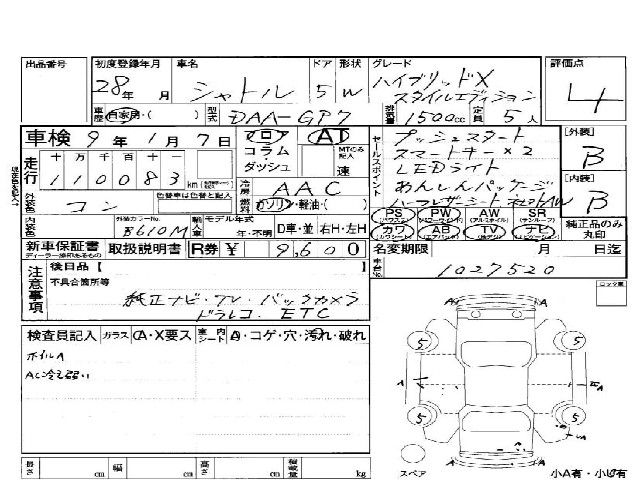 出品番号 初度登録年月 車名 ドア 形状 グレード 評価点
28年 月 シャトル 5 W ハイブリッドX スタイルエディション 4
車歴 自家用・( ) 型式 DAA-GP7 排気量 1500cc 定員 5人
車検 9年 1月 7日 フロア AT セールスポイント プッシュスタート [外装]
走行 十 万 千 百 十 一 コラム MTのみ記入 スマートキー×2 B
110083 km ダッシュ 速 LEDライト
外装色 コン 色替車は色替と記入 冷房 AAC あんしんパッケージ [内装]
燃料 ガソリン・軽油・( ) ハーフレザーシート AW B
内装色 外装カラーNo. B610M 輸入車 モデル年式 年・不明 D車・並 右H・左H PS PW AW SR
カワ AB TV ナビ 純正品のみ丸印
新車保証書 取扱説明書 R券 ¥ 9,600 名変期限 月 日迄
ディーラー捺印あるもの
注意事項 後日品【 】 車台No. 1027520
不具合箇所等 ロック
純正ナビ・TV・バックカメラ
ドラレコ・ETC
検査員記入 ガラス A・X要ス 室内シート A・コゲ・穴・汚れ・破れ
ホイルA
AC冷え弱い
5 5
A A A
5 5
スペア 小A有・小U有
長さ cm 幅 cm 高さ cm 積載量 kg